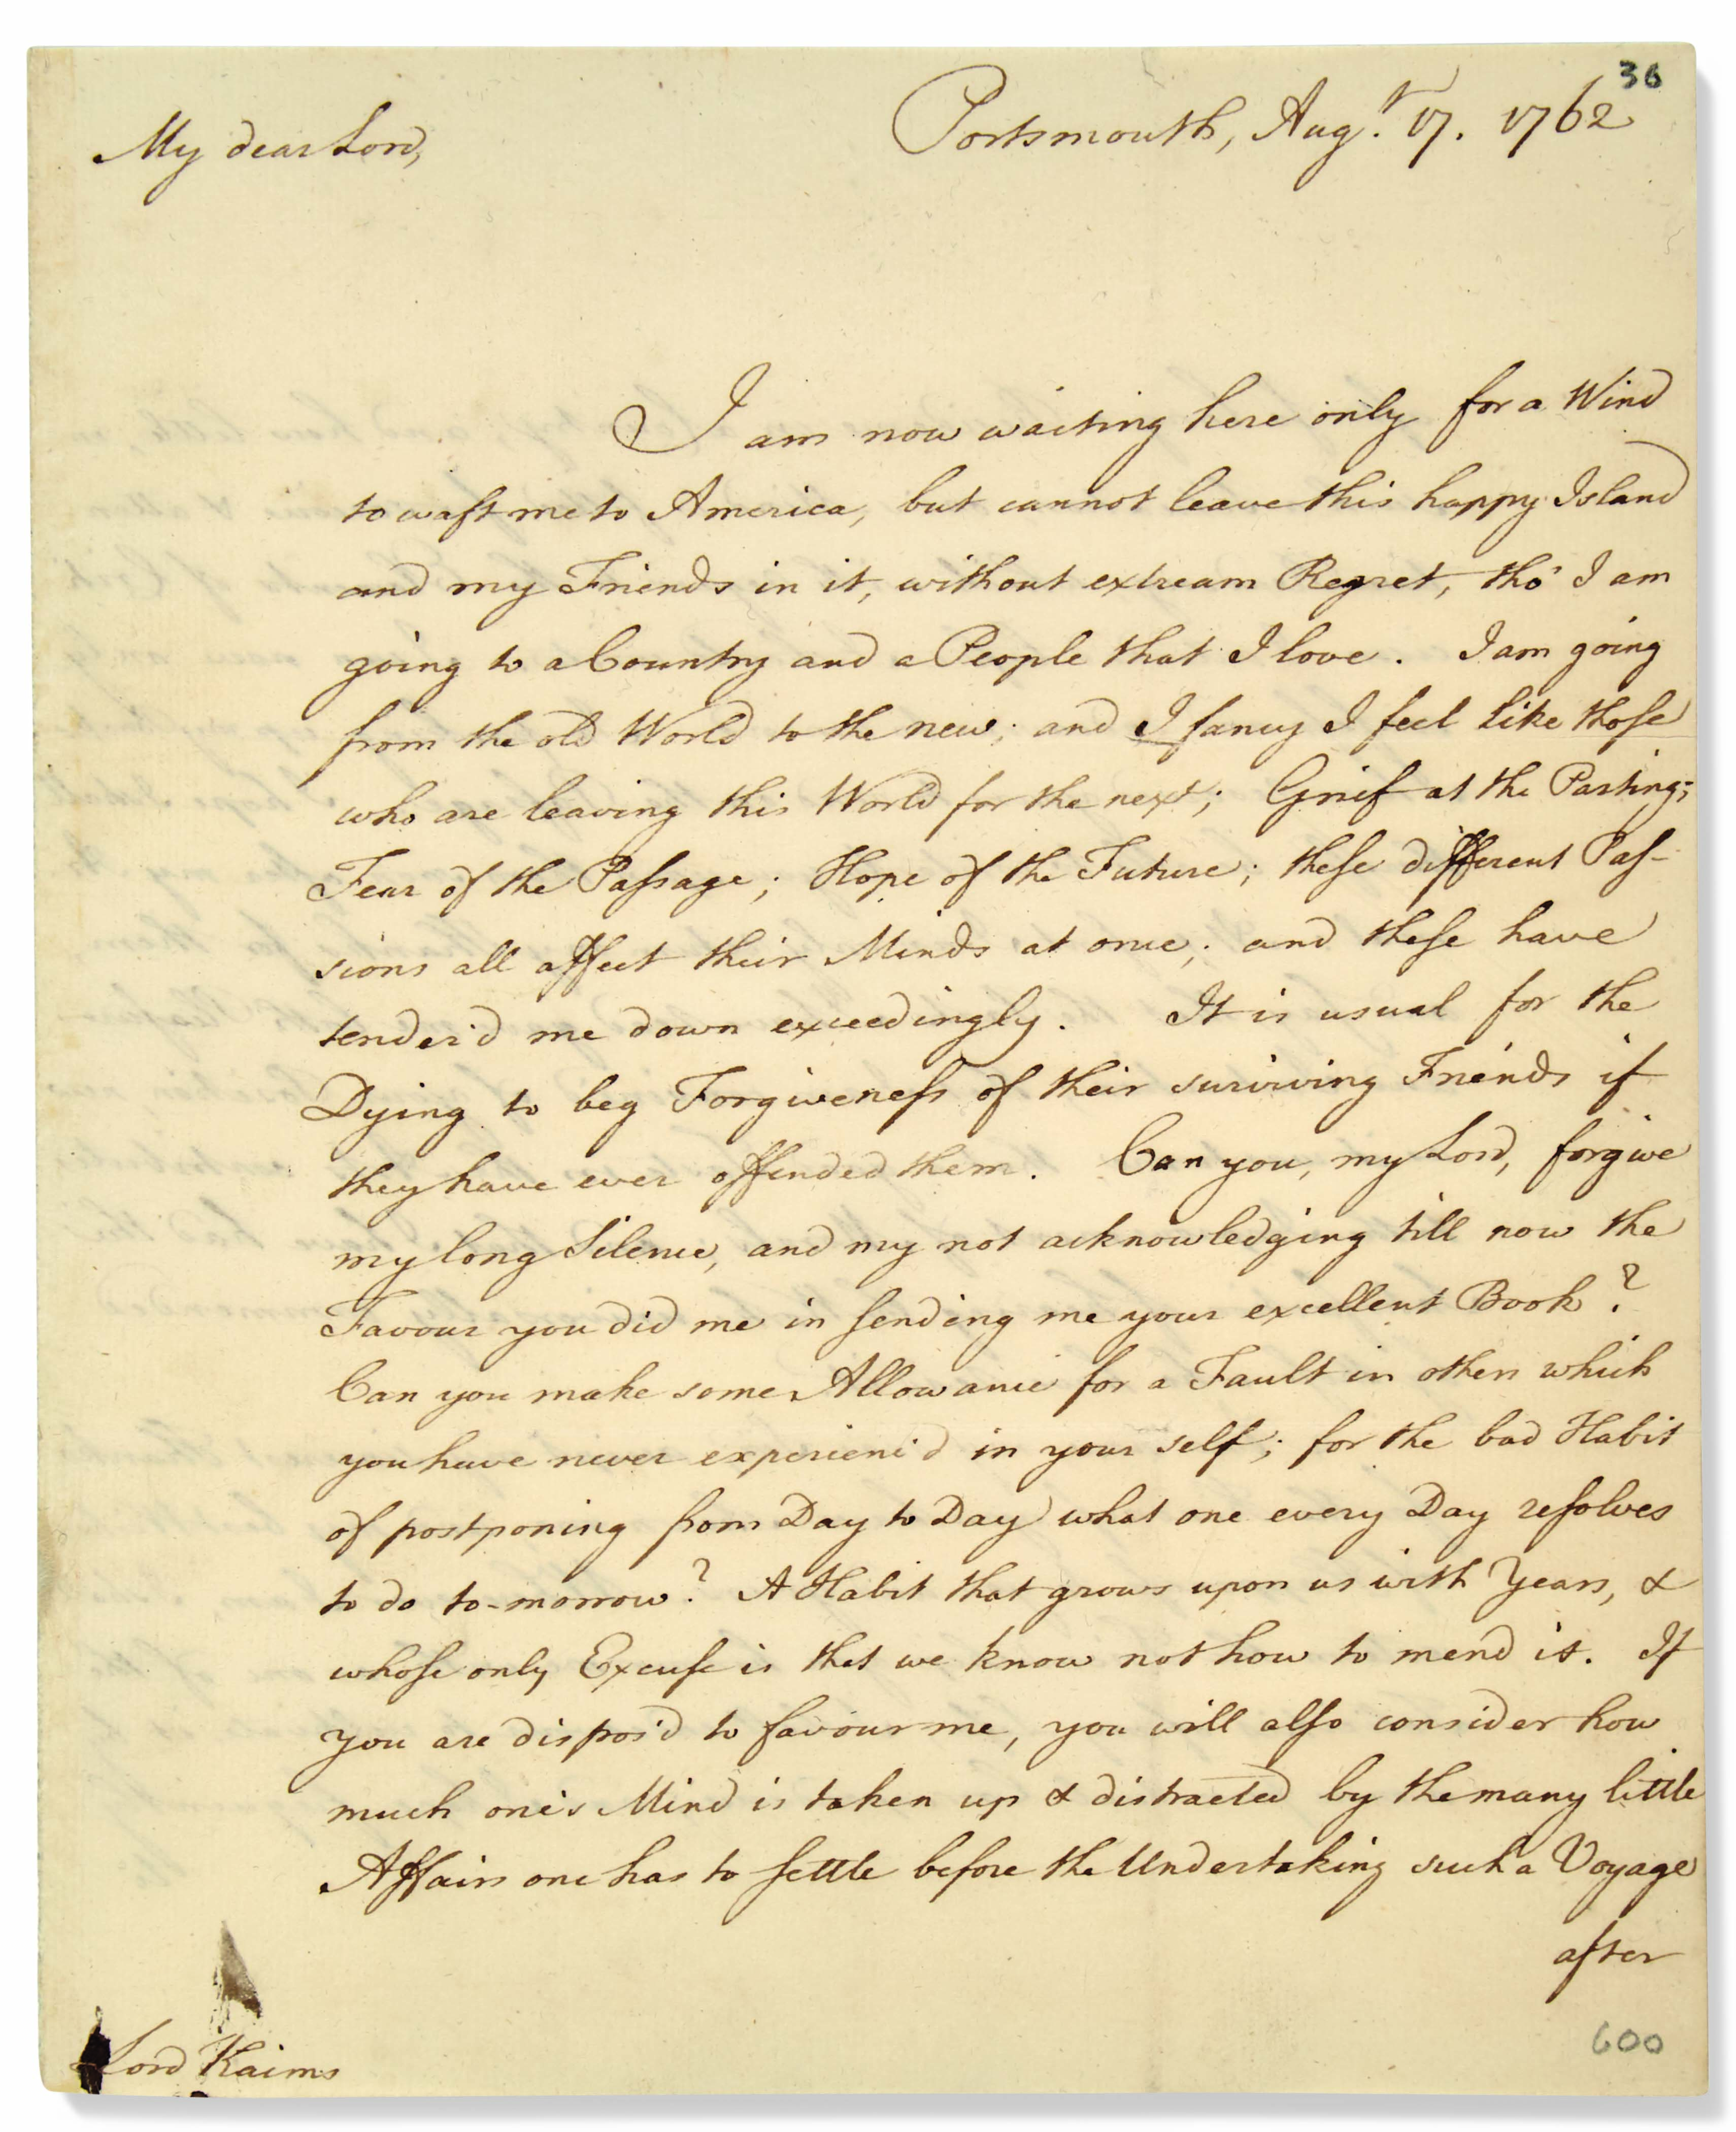 36
Portsmouth, Augt. 17. 1762
My dear Lord,
I am now waiting here only for a Wind
to waft me to America, but cannot leave this happy Island
and my Friends in it, without extream Regret, tho' I am
going to a Country and a People that I love. I am going
from the old World to the new; and I fancy I feel like those
who are leaving this World for the next; Grief at the Parting;
Fear of the Passage; Hope of the Future; these different Pas-
sions all affect their Minds at once; and these have
tender'd me down exceedingly. It is usual for the
Dying to beg Forgiveness of their surviving Friends if
they have ever offended them. Can you, my Lord, forgive
my long Silence, and my not acknowledging till now the
Favour you did me in sending me your excellent Book?
Can you make some Allowance for a Fault in others which
you have never experienc'd in your self; for the bad Habit
of postponing from Day to Day what one every Day resolves
to do to-morrow? A Habit that grows upon us with Years, &
whose only Excuse is that we know not how to mend it. If
you are dispos'd to favour me, you will also consider how
much one's Mind is taken up & distracted by the many little
Affairs one has to settle before the Undertaking such a Voyage
after
Lord Kaims
600